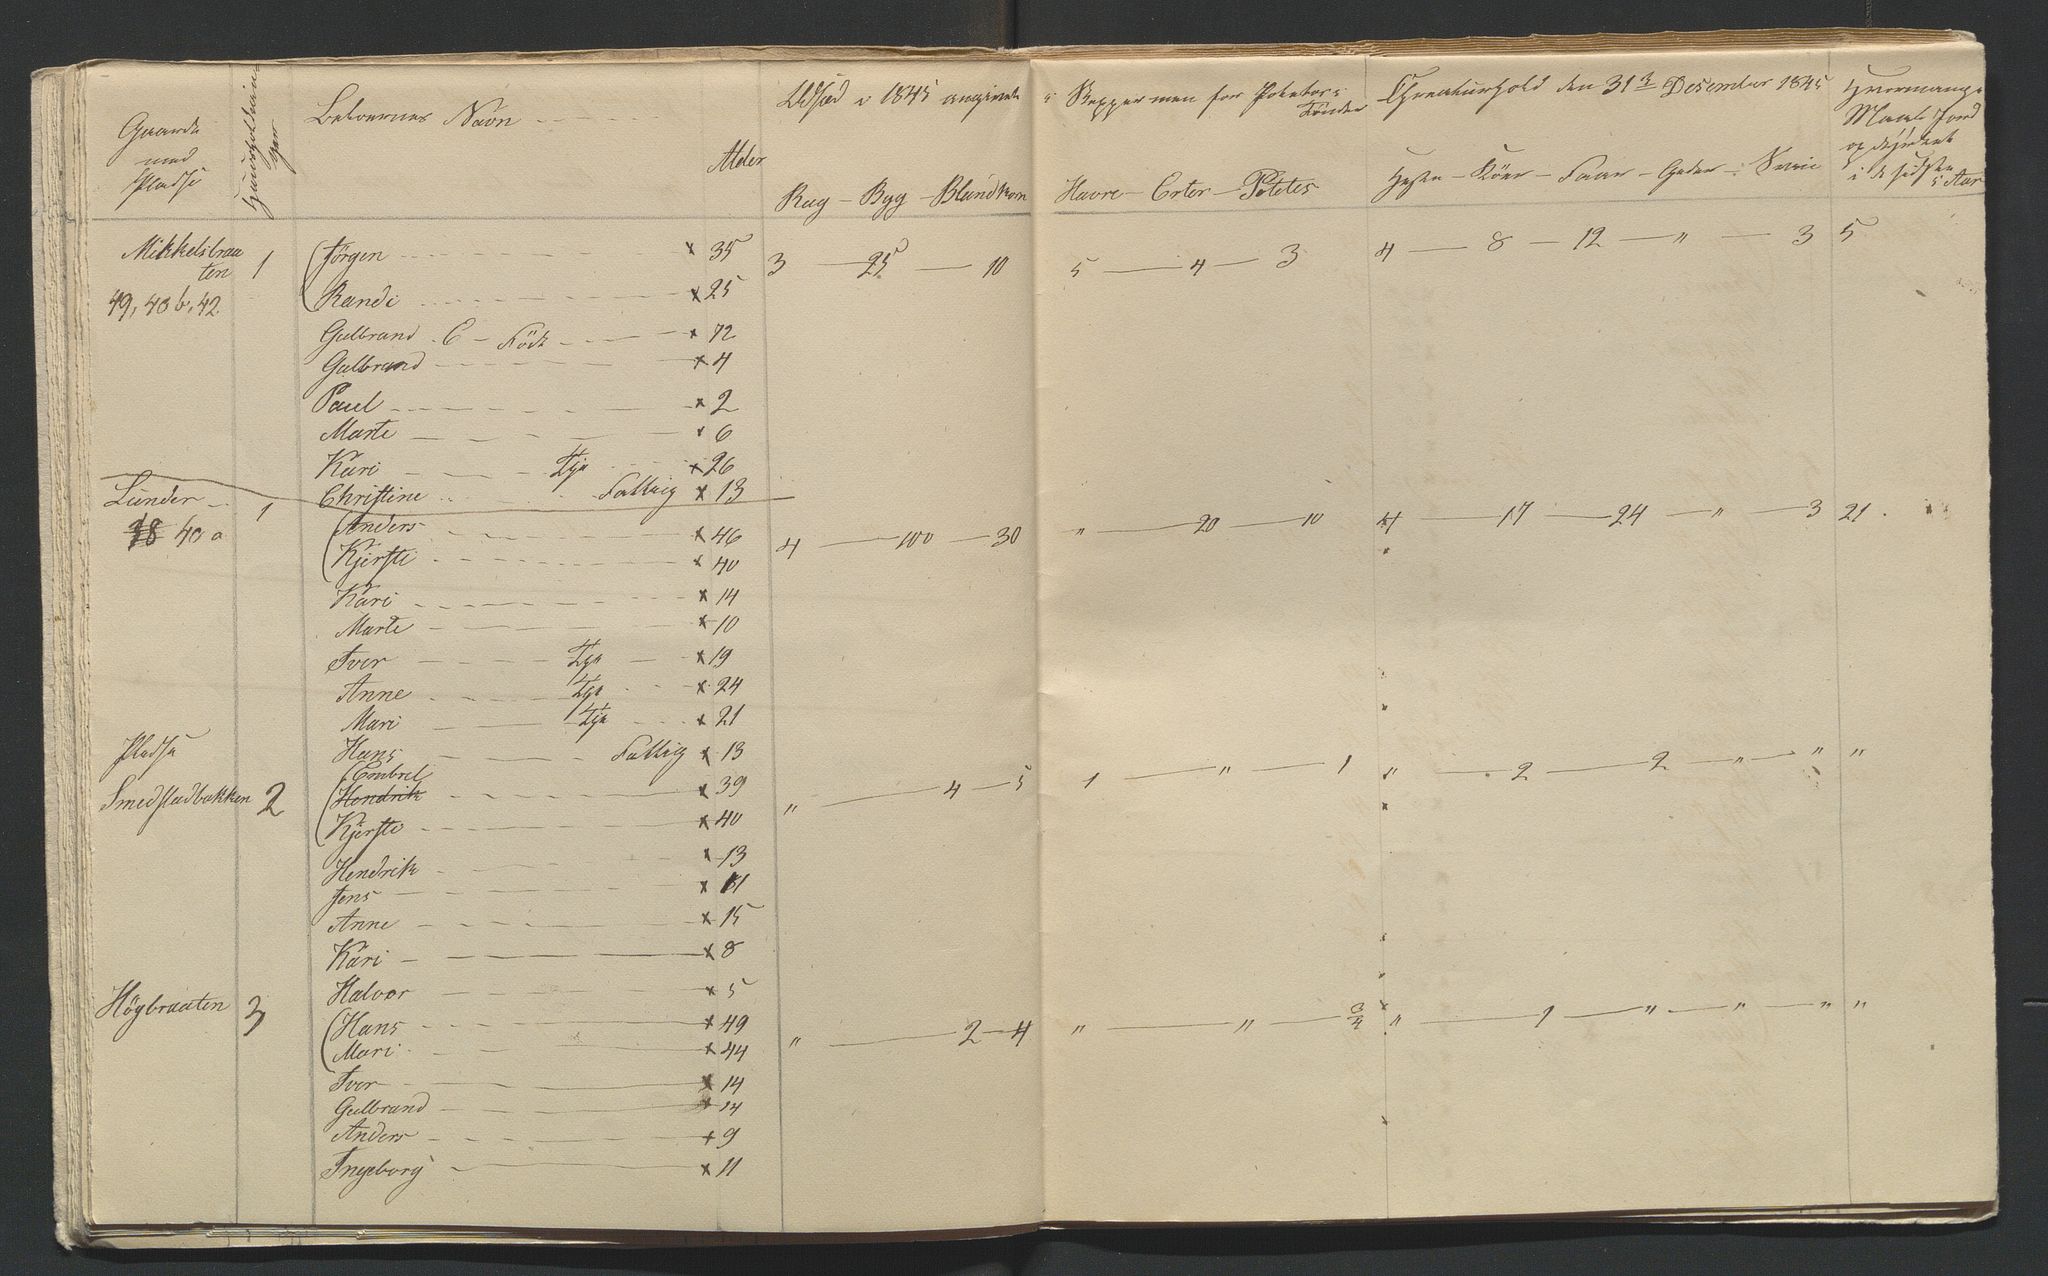 Gaarde med Pladse
Huusholdninger
Beboernes Navn
Alder
Udsæd i 1845 angivet i Skepper men for Poteter i Tønder
Rug - Byg - Blandkorn
Havre - Erter - Potetes
Creaturhold den 31 Desember 1845
Heste - Köer - Faar - Geder - Sviin
Hvormange Maal Jord opdyrket i de sidste 5 Aar
Mikkelsbraaten 1 Jørgen x 35 3 25 10 5 4 3 4 8 12 " 3 5
49, 43 b, 42 Randi x 25
Gulbrand C - Födr x 72
Gulbrand x 4
Paul x 2
Marte x 6
Kari Tje x 26
Christine Fattig x 13
Lunder 1 Anders x 46 4 100 30 " 20 10 4 17 24 " 3 21
18 40 a Kjersti x 40
Kari x 14
Marte x 10
Iver Tje x 19
Anne Tje x 24
Mari Tje x 21
Pladse Hans Fattig x 13
Smedstadbakken 2 Embret x 39 " 4 5 1 " 1 " 2 2 " " "
Hendrik
Kjersti x 40
Hendrik x 13
Jens x 11
Anne x 15
Kari x 8
Halvor x 5
Högbraaten 3 Hans x 49 " 2 4 " " 3/4 " 1 " " " "
Mari x 44
Iver x 14
Gulbrand x 14
Anders x 9
Ingeborg x 11